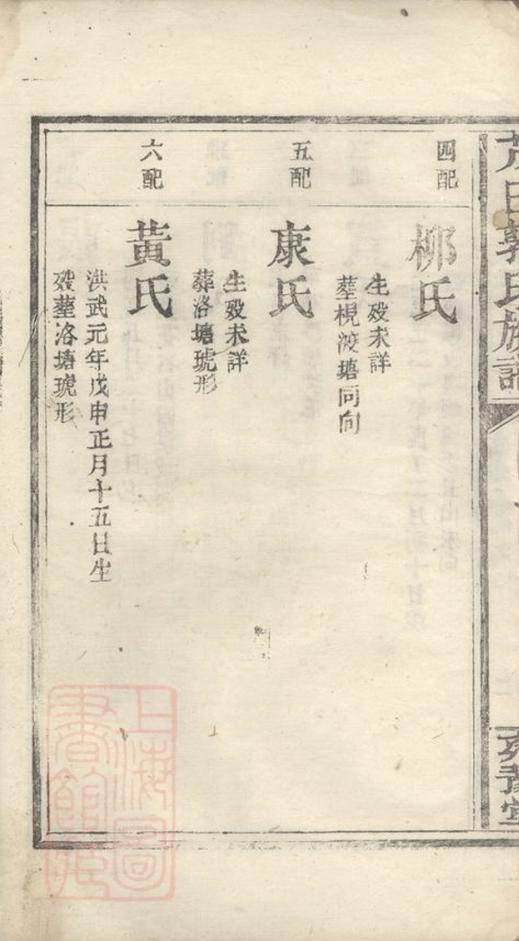 郭氏族譜
四配
柳氏
生殁未詳
塟梘渡塘同向
五配
康氏
生殁未詳
葬洛塘琥形
六配
黃氏
洪武元年戊申正月十五日生
殁塟洛塘琥形
上海圖
書館藏